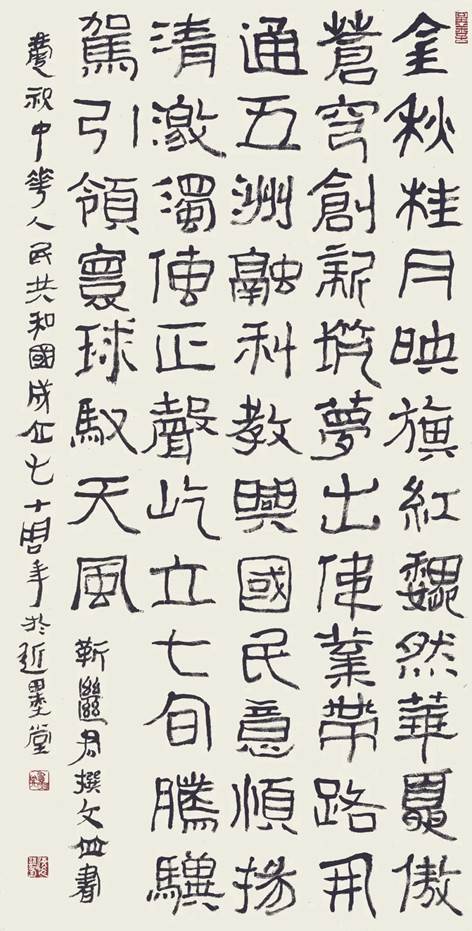 金秋桂月映旗紅巍然華夏傲
蒼穹創新筑夢出伟業帶路开
通五洲融科教興國民意順揚
清激濁使正聲屹立七旬騰驥
駕引領寰球馭天風
靳繼君撰文並書
慶祝中華人民共和國成立七十周年於近墨堂